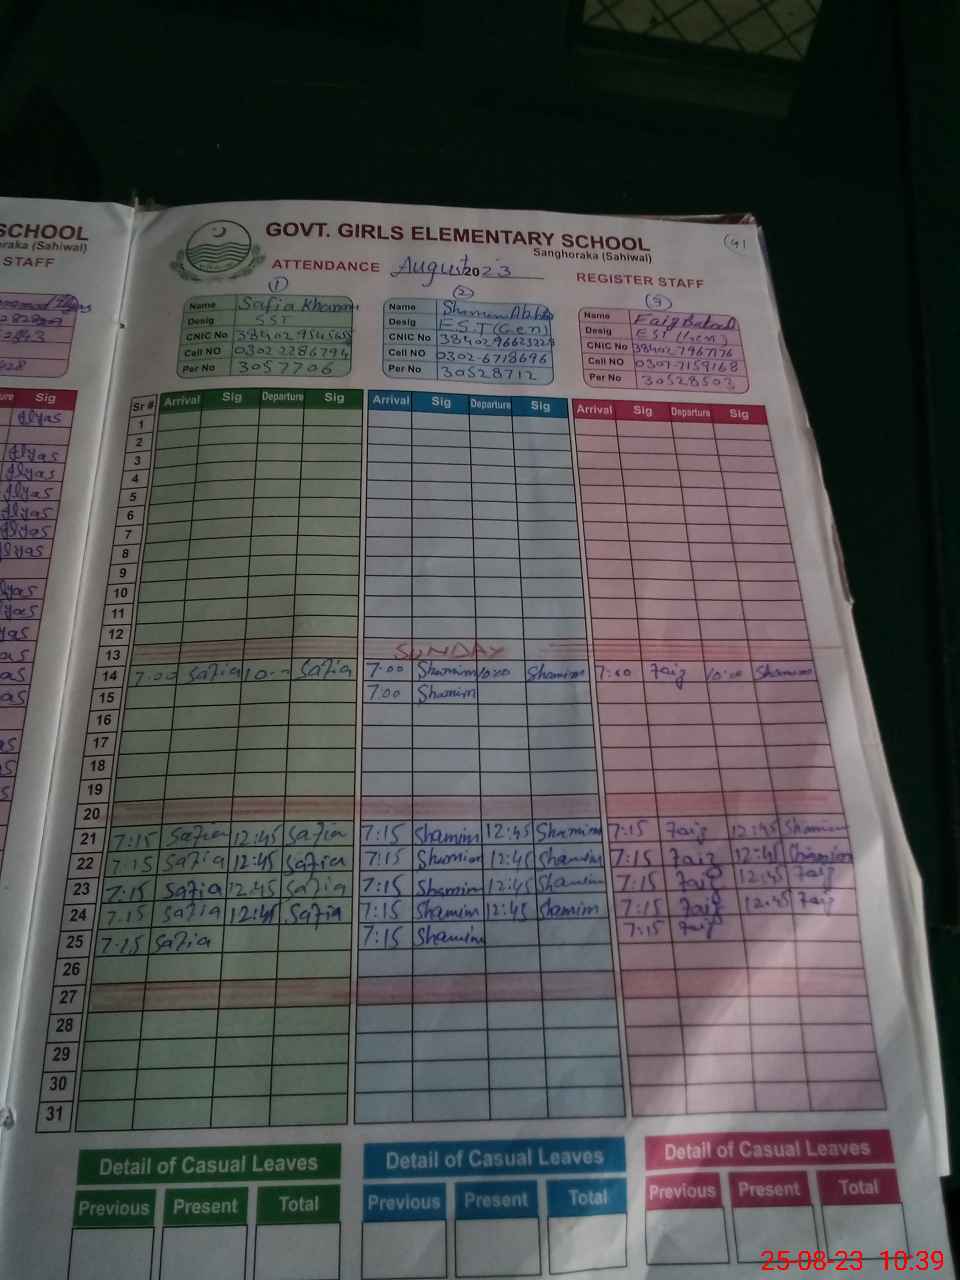 SCHOOL
GOVT. GIRLS ELEMENTARY SCHOOL
Sanghoraka (Sahiwal)
raka (Sahiwal)
STAFF
ATTENDANCE August 2023 REGISTER STAFF
1 2 3
Name Safia Khanam Name Shamim Name Faiz
Desig SST Desig E.S.T (Gen) Desig EST (Gen)
CNIC No CNIC No CNIC No
Cell NO 0302 2286794 Cell NO 0302-6718696 Cell NO 0307-7159168
Per No 3057706 Per No 30528712 Per No 30528503
ure Sig
Sr # Arrival Sig Departure Sig Arrival Sig Departure Sig Arrival Sig Departure Sig
Ilyas
1
2
Ilyas 3
Ilyas 4
Ilyas 5
Ilyas 6
Ilyas 7
Ilyas 8
9
lyas 10
lyas 11
yas 12
as 13 SUNDAY
as 14 7:00 Safia 10:00 Safia 7:00 Shamim 10:00 Shamim 7:00 Faiz 10:00 Shamim
as 15 7:00 Shamim
16
17
18
19
20
21 7:15 Safia 12:45 Safia 7:15 Shamim 12:45 Shamim 7:15 Faiz 12:45 Shamim
22 7:15 Safia 12:45 Safia 7:15 Shamim 12:45 Shamim 7:15 Faiz 12:45 Shamim
23 7:15 Safia 12:45 Safia 7:15 Shamim 12:45 Shamim 7:15 Faiz 12:45 Faiz
24 7:15 Safia 12:45 Safia 7:15 Shamim 12:45 Shamim 7:15 Faiz 12:45 Faiz
25 7:15 Safia 7:15 Shamim 7:15 Faiz
26
27
28
29
30
31
Detail of Casual Leaves Detail of Casual Leaves Detail of Casual Leaves
Previous Present Total Previous Present Total Previous Present Total
25-08-23 10:39